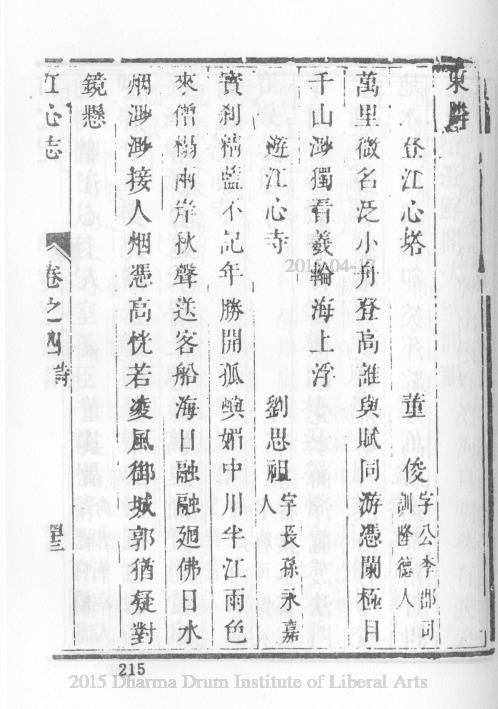 東
登江心塔 董俊字公李郡司訓隆德人
萬里微名泛小舟登高誰與賦同游憑闌極目
千山渺獨看羲輪海上浮
遊江心寺 劉思祖字長孫永嘉人
寶刹精藍不記年勝開孤嶼媚中川半江雨色
來僧榻兩岸秋聲送客船海日融融廻佛日水
烟渺渺接人烟憑高恍若凌風御城郭猶疑對
鏡懸
江心志 卷之四 詩
215
2015 Dharma Drum Institute of Liberal Arts